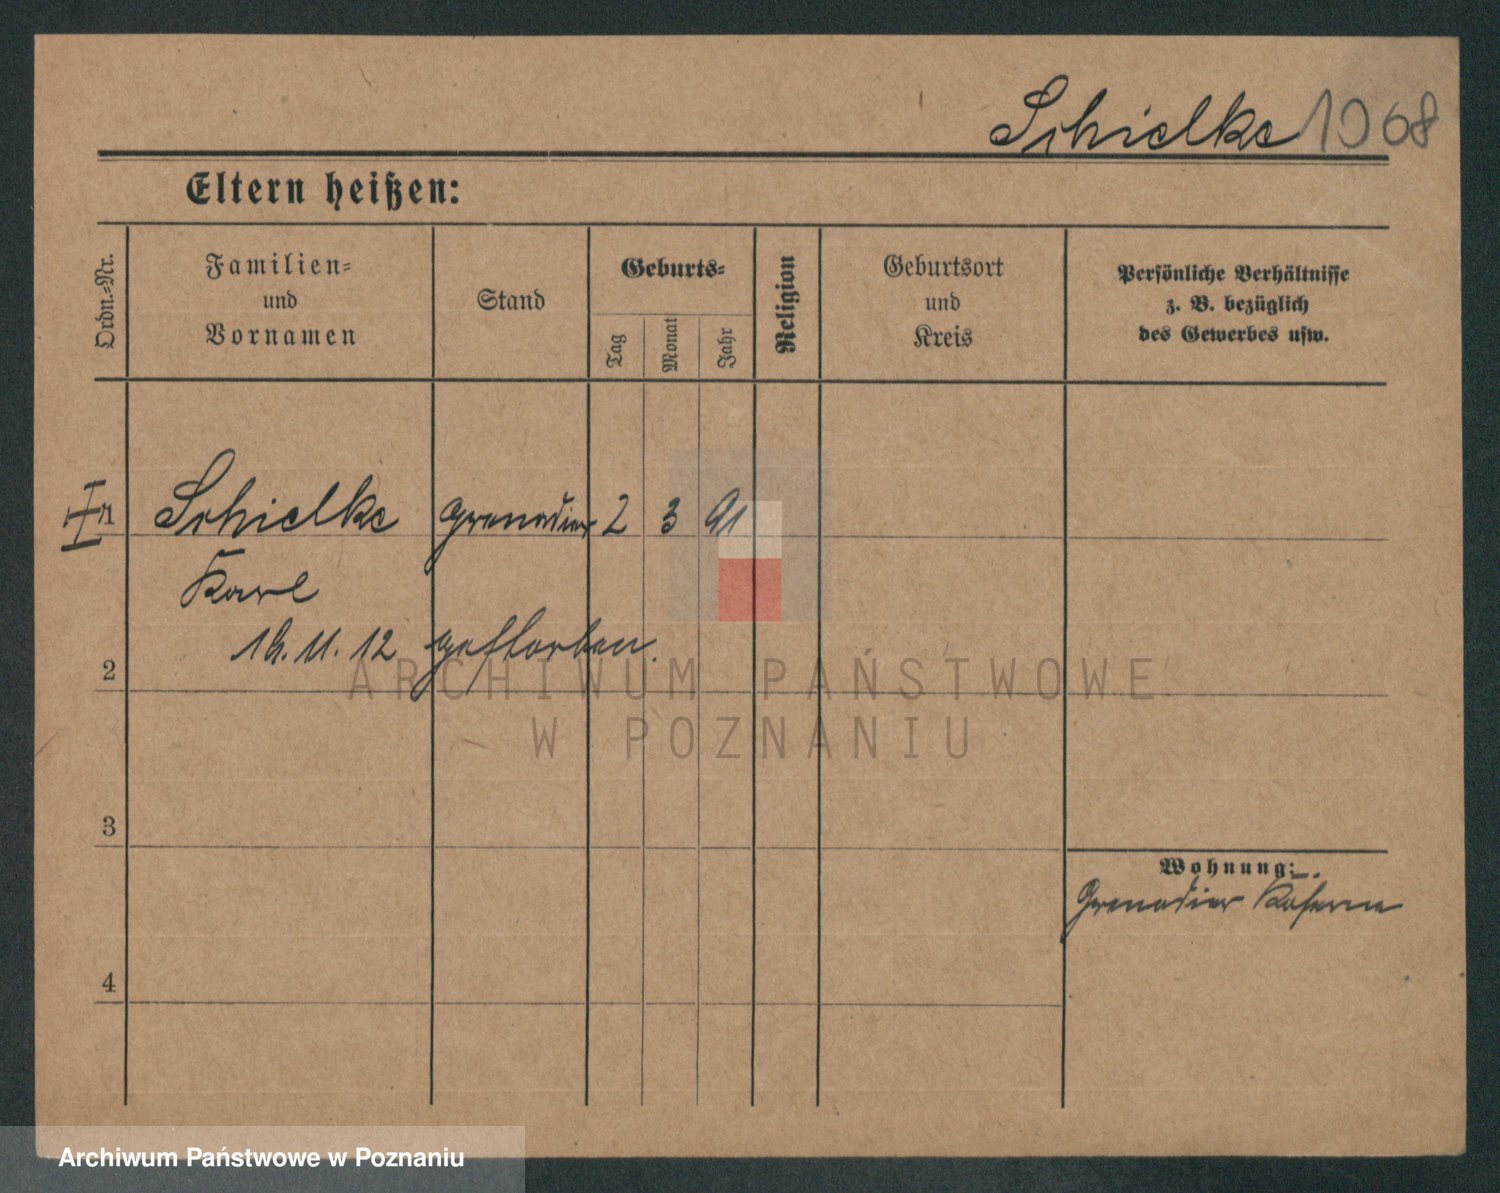 Schielke 1968
Eltern heißen:
Ordn.-Nr.
Familien-
und
Vornamen
Stand
Geburts-
Tag
Monat
Jahr
Religion
Geburtsort
und
Kreis
Persönliche Verhältnisse
z. B. bezüglich
des Gewerbes usw.
Schielke Grenadier 2 3 91
Karl
11. 12 gestorben.
2
3
Wohnung:
Grenadier Kaserne
4
ARCHIWUM PAŃSTWOWE
W POZNANIU
Archiwum Państwowe w Poznaniu